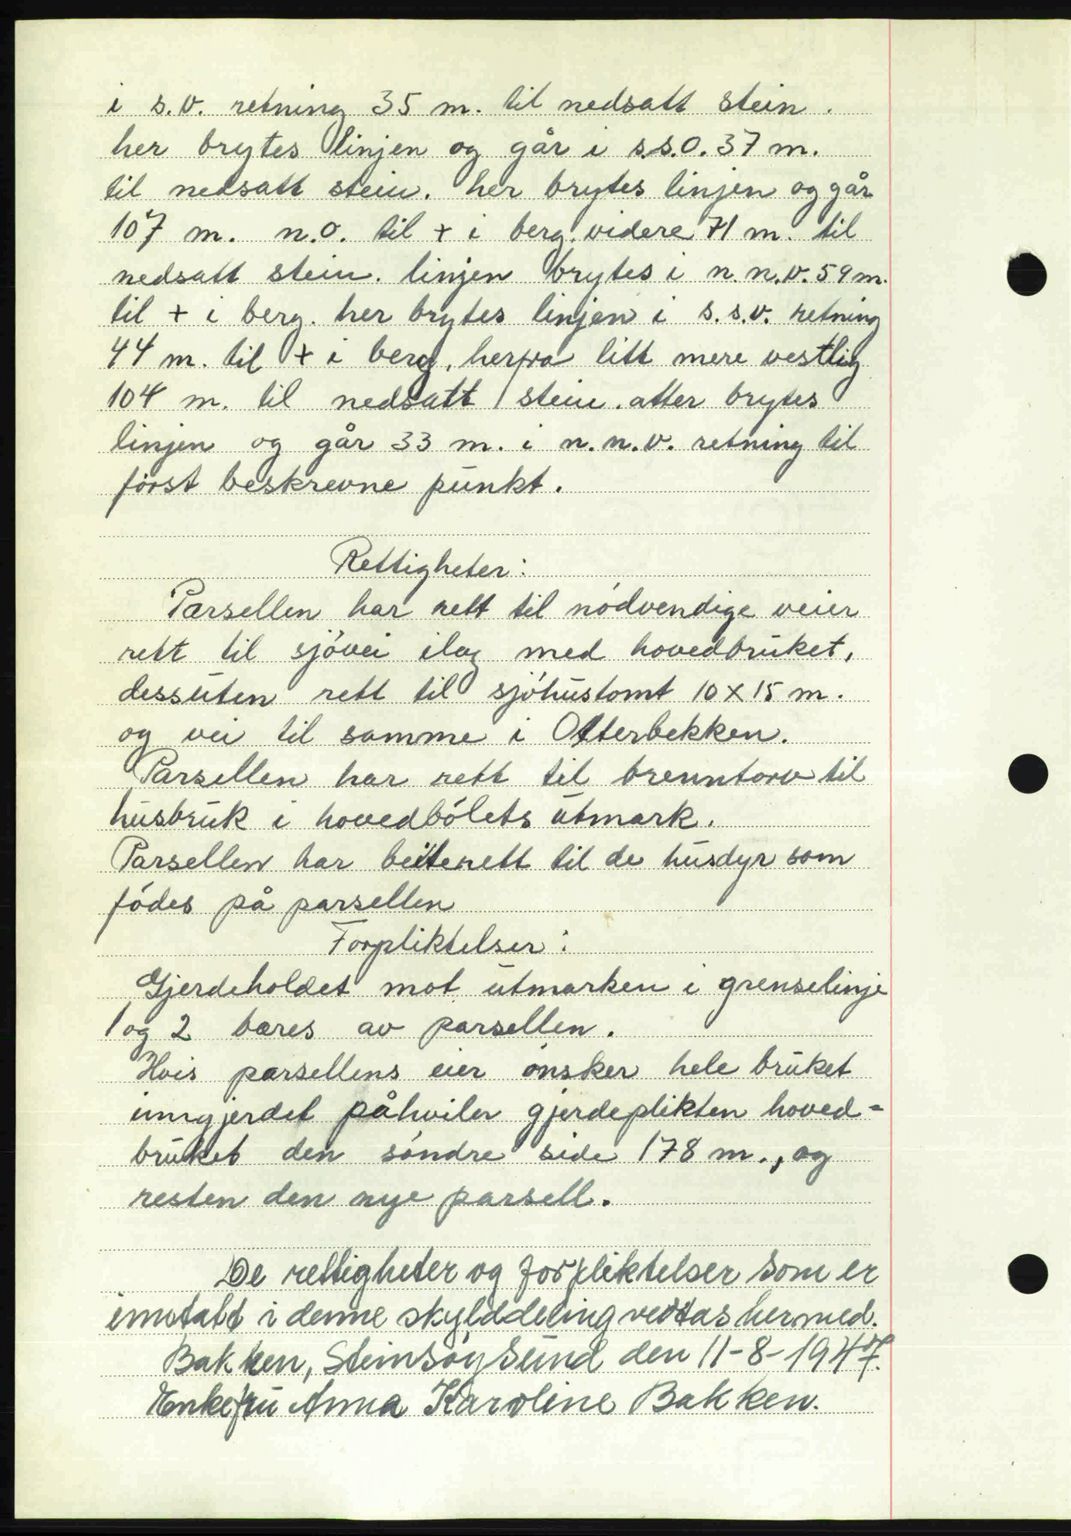 i s.v. retning 35 m. til nedsatt stein.
her brytes linjen og går i s.s.o. 37 m.
til nedsatt stein. her brytes linjen og går
107 m. n.o. til + i berg. videre 71 m. til
nedsatt stein. linjen brytes i n.n.v. 59 m.
til + i berg. her brytes linjen i s.s.v. retning
44 m. til + i berg, herfra litt mere vestlig
104 m. til nedsatt stein. atter brytes
linjen og går 33 m. i n.n.v. retning til
først beskrevne punkt.
Rettigheter:
Parsellen har rett til nödvendige veier
rett til sjövei ilag med hovedbruket,
dessuten rett til sjöhustomt 10 x 15 m.
og vei til samme i Otterbekken.
Parsellen har rett til brenntorv til
husbruk i hovedbölets utmark.
Parsellen har beiterett til de husdyr som
födes på parsellen
Forpliktelser:
Gjerdeholdet mot utmarken i grenselinje
1 og 2 bæres av parsellen.
Hvis parsellens eier önsker hele bruket
inngjerdet påhviler gjerdeplikten hoved=
bruket den söndre side 178 m., og
resten den nye parsell.
De rettigheter og forpliktelser som er
inntatt i denne skylddeling vedtas hermed.
Bakken, Steinsöysund den 11-8-1947.
Enkefru Anna Karoline Bakken.